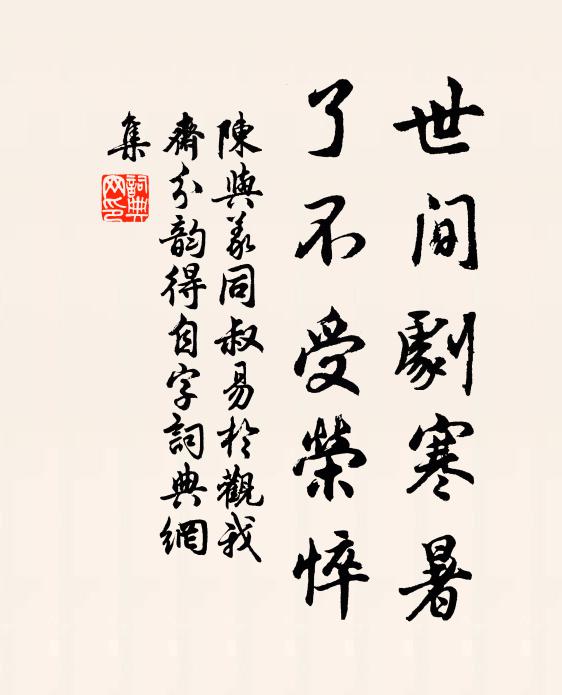 世間劇寒暑
了不受榮悴
陳與義同叔易於觀我
齋分韵得自字詞典網
集
詞典網印